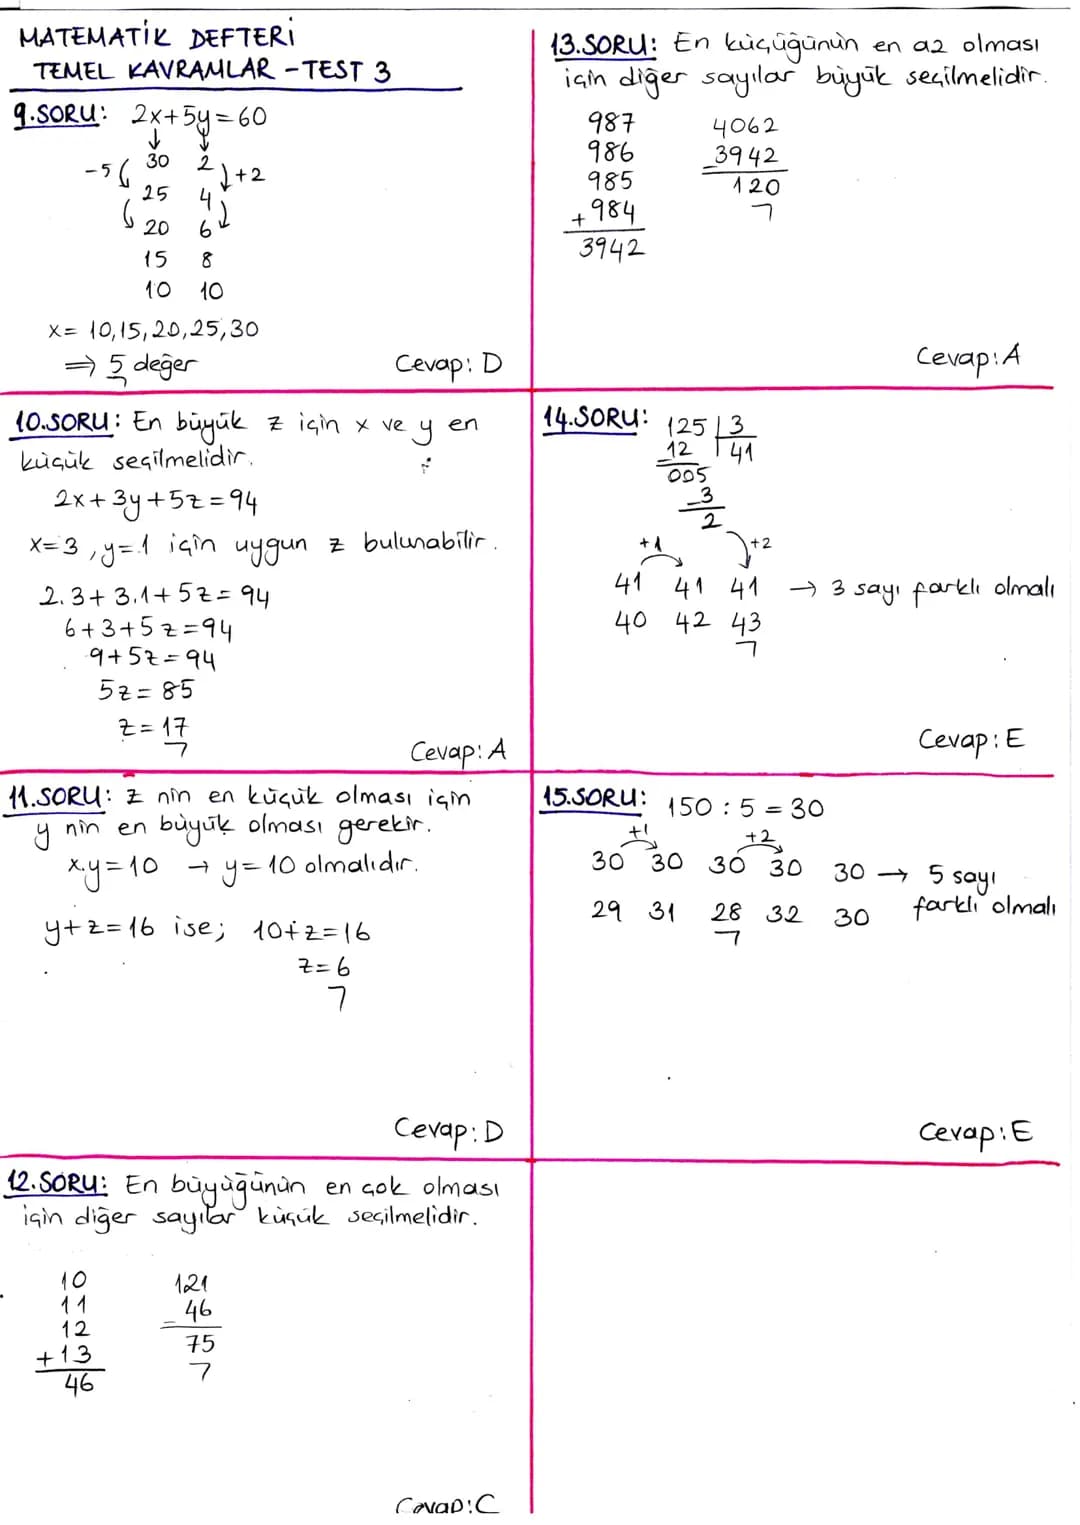 MATEMATİK DEFTERİ
TEMEL KAVRAMLAR - TEST 3
9.SORU: 2x+5y=60
30 2
-5 +2
25 4
20 6
15 8
10 10
x= 10,15,20,25,30
⇒ 5 değer
Cevap: D
10.SORU: En büyük z için x ve y en
küçük seçilmelidir.
2x+3y+5z=94
x=3, y=1 için uygun z bulunabilir.
2.3+3.1+5z=94
6+3+5z=94
9+5z=94
5z=85
z=17
Cevap: A
11.SORU: z nin en küçük olması için
y nin en büyük olması gerekir.
x.y=10 → y=10 olmalıdır.
y+z=16 ise; 10+z=16
z=6
Cevap: D
12.SORU: En büyüğünün en çok olması
için diğer sayılar küçük seçilmelidir.
10
11
12
+13
46
121
- 46
75
Cevap: C
13.SORU: En küçüğünün en az olması
için diğer sayılar büyük seçilmelidir.
987
986
985
+984
3942
4062
-3942
120
Cevap: A
14.SORU:
125 3
-12 41
005
-3
2
+1 +2
41 41 41 → 3 sayı farklı olmalı
40 42 43
Cevap: E
15.SORU: 150 : 5 = 30
+1 +2
30 30 30 30 30 → 5 sayı
farklı olmalı
29 31 28 32 30
Cevap: E